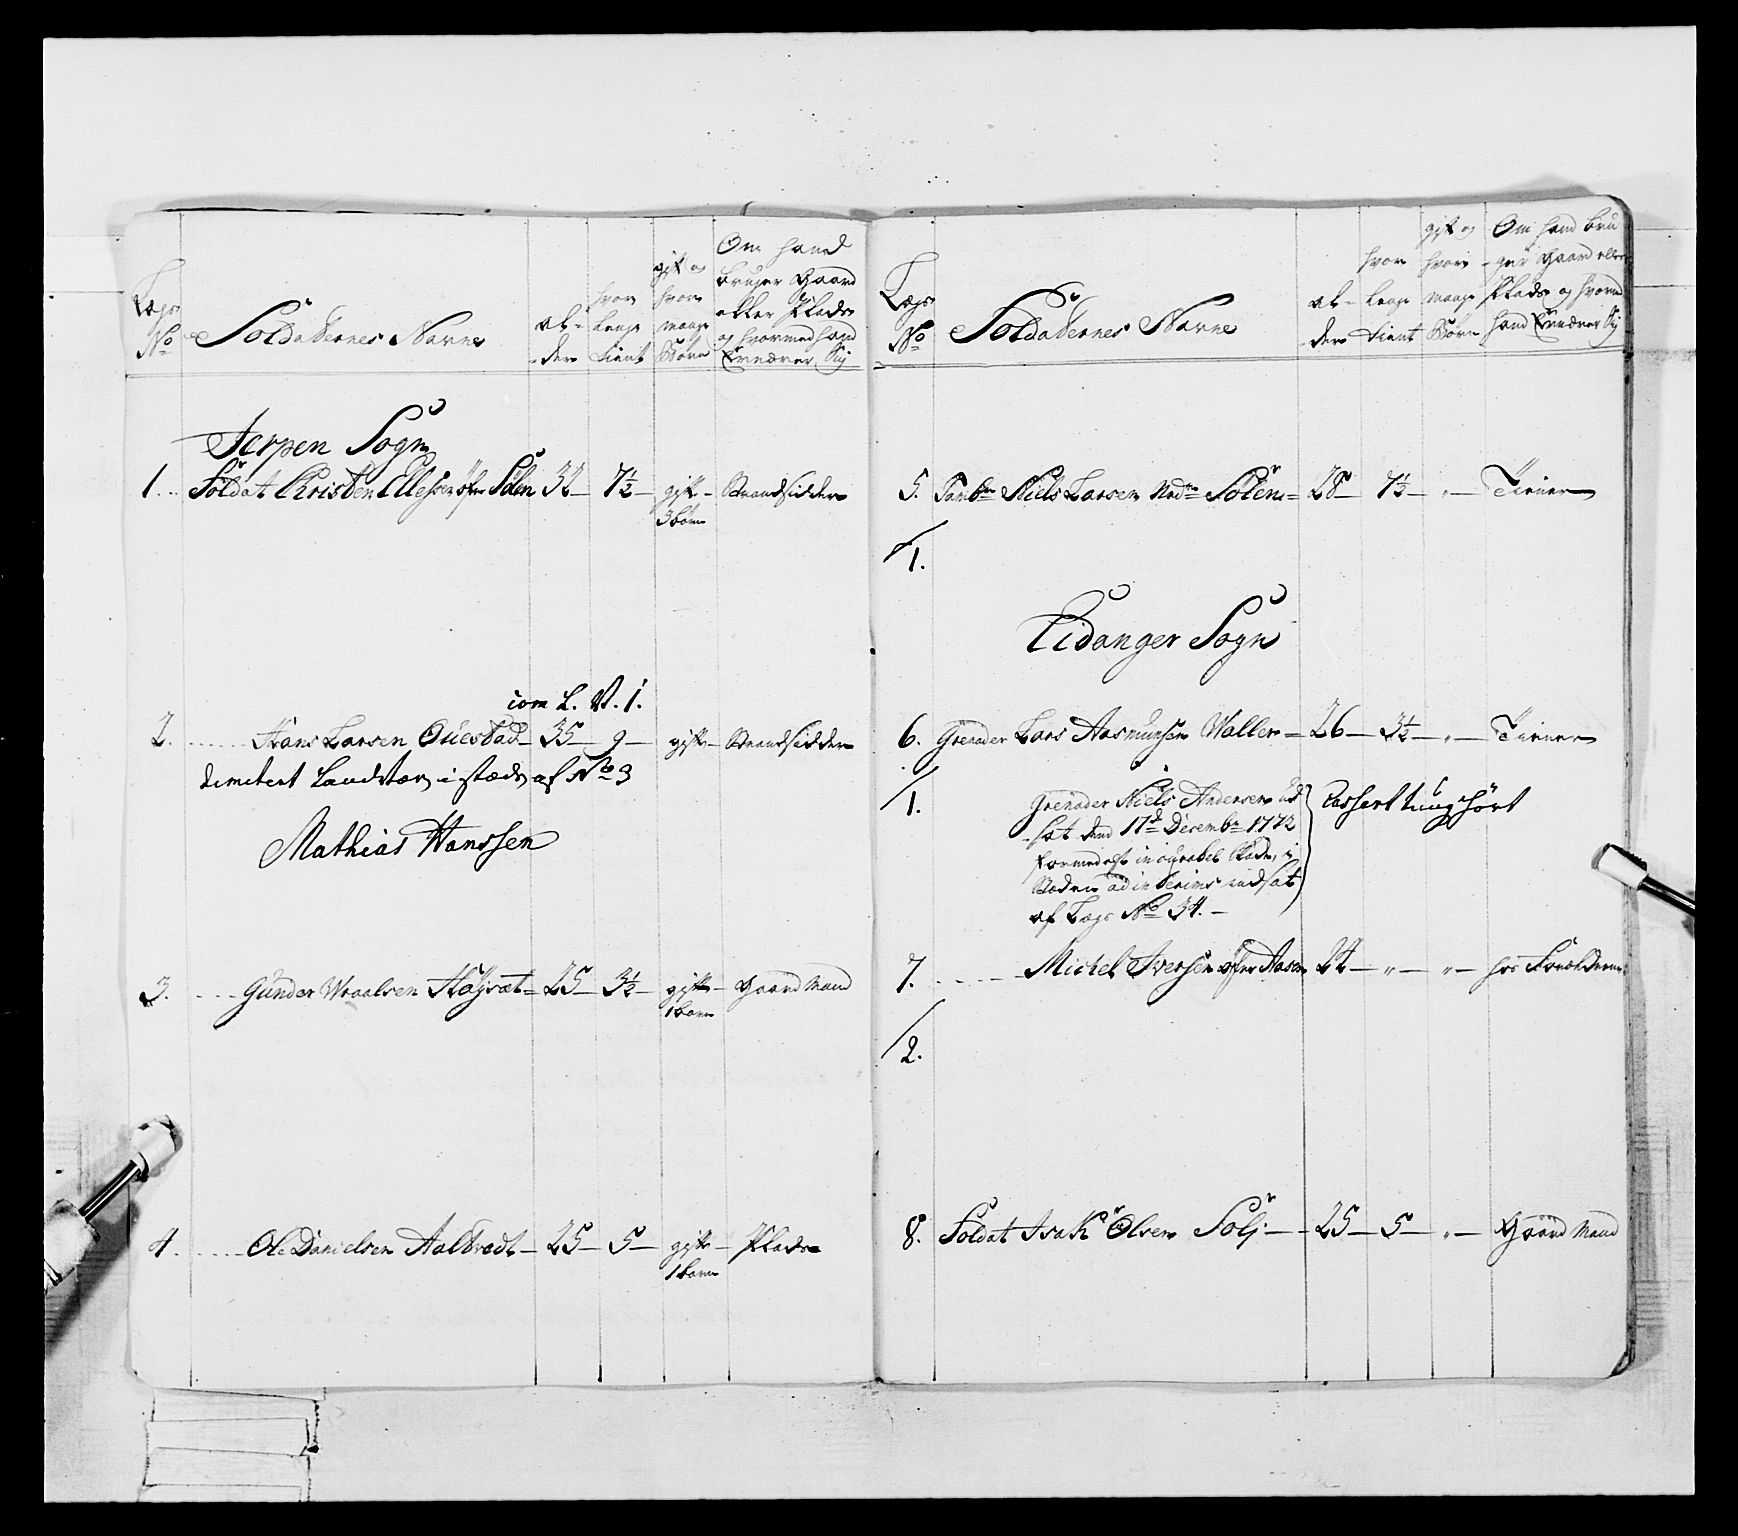 Lægs No
Soldaternes Navne
al-
der
hvor
lenge
tient
gift og
hvor
mange
Børn
Om hand
bruger Gaard
eller Plads
og hvormed hand
Ernærer Sig
Jerpen Sogn
1. Soldat Kristen Ellefsen øfre Sølen 32 7½ gift Strandsidder
3 børn
com L. N. 1.
2. Hans Larsen Ouestad 35 9 gift Strandsidder
dimitert Landværn i stæde af No 3
Mathias Hanssen
3. Gunder Wraalsen Høysæt 25 3½ gift Gaard Mand
1 barn
4. Ole Danielsen Aalbrect 25 5 gift Plads
1 barn
Lægs No
Soldaternes Navne
al-
der
hvor
lenge
tient
gift og
hvor
mange
Børn
Om hand bru
ger Gaard eller
Plads og hvormed
hand Ernærer Sig
5. Tambr Niels Larsen Nedre Sølen 28 7½ " Tiener
/1.
Eidanger Sogn
6. Grenader Lars Aasmunsen Waller 26 3½ " Tiener
/1. Grenader Niels Andersen ud
sat dend 17de Decembr 1772
formedelst incurabel Skade, i
Stæden ad interims indsat
af Lægs No 34.
7. Michel Iversen øfre Aasen 22 " " hos Forældrene
/2.
8. Soldat Isak Olsen Solj 25 5 " Gaard Mand